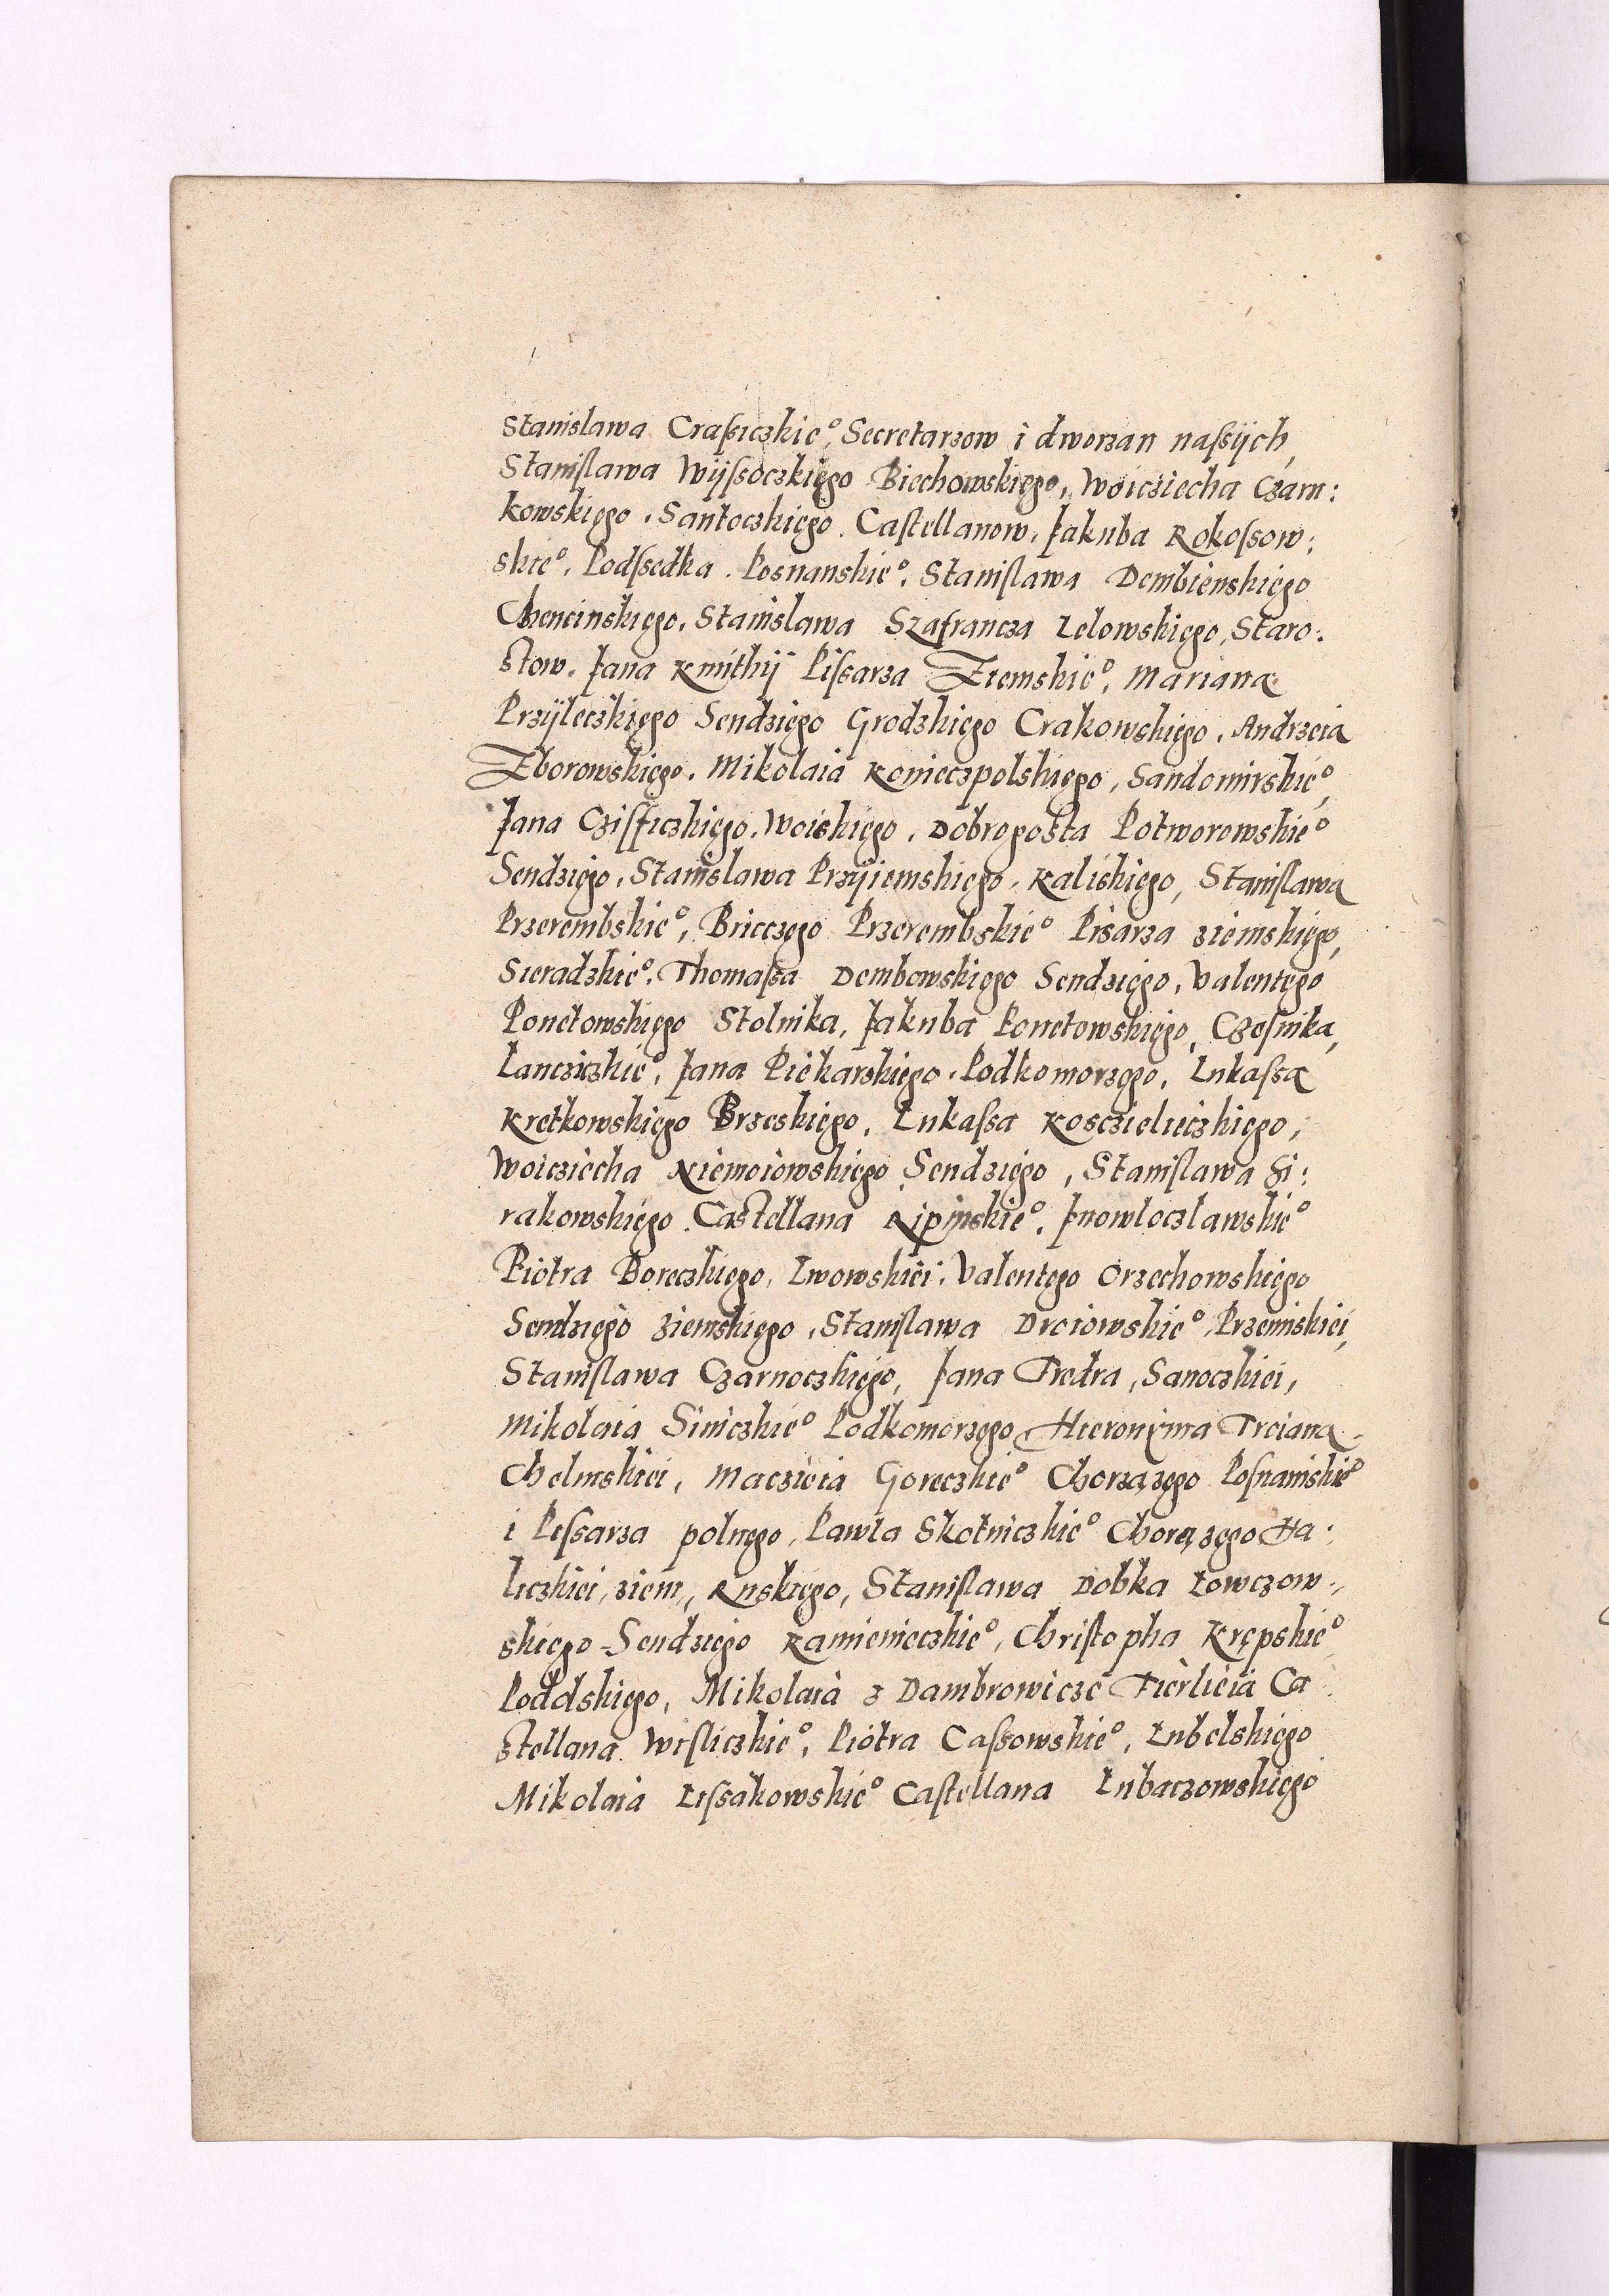 Stanislawa Craſsiczkie°, Secretarzow i dworzan naſsÿch,
Staniſlawa Wÿſsoczkiego Biechowskiego, Woicziecha Czarn:
kowskiego, Santoczkiego Caſtellanow, Jakuba Rokoſsow:
skie°, Podſsedka Posnanskie°, Staniſlawa Dembienskiego
Chencinskiego, Stanislawa Szafrancza Lelowskiego, Staro:
stow, Jana Kmithÿ Piſsarza Ziemskie°, Mariana
Przÿleczkiego Sendziego Grodzkiego Crakowskiego, Andrzeia
Zborowskiego, Mikolaia Konieczpolskiego, Sandomirskie°,
Jana Cziſficzkiego, Woiskiego, Dobrogosta Potworowskie°
Sendziego, Stanislawa Przÿiemskiego, Kaliskiego, Staniſlawa
Przerembskie°, Bricczego Przerembskie° Pisarza ziemskiego,
Sieradzkie°, Thomaſsa Dembowskiego Sendziego, Valentego
Ponetowskiego Stolnika, Jakuba Ponetowskiego, Czeſnika,
Lancziczkie°, Jana Piekarskiego, Podkomorzego, Lukaſsa
Kretkowskiego Brzeskiego, Lukaſsa Kosczieleczkiego,
Woicziecha Niemoiowskiego Sendziego, Staniſlawa Si:
rakowskiego Castellana Ripinskie°, Jnowloczlawskie°
Piotra Boreczkiego, Lwowskiei, Valentego Orzechowskiego
Sendziego Ziemskiego, Staniſlawa Droiowskie°, Przemiskiei,
Staniſlawa Czarnoczkiego, Jana Fredra, Sanoczkiei,
Mikolaia Siniczkie° Podkomorzego, Hieronyma Troiana
Chelmskiei, Maczieia Goreczkie° Chorzązego Poſnanskie°
i Piſsarza polnego, Pawla Skotniczkie° Chorązego Ha:
liczkiei, ziem,, Ruskiego, Staniſlawa Dobka Lowczow,,
skiego Sendziego Kamienieczkie°, Chriſtopha Krępskie°
Podolskiego, Mikolaia z Dambrowicze Fierlieia Ca
stellana Wiſliczkie°, Piotra Caſsowskie°, Lubelskiego
Mikolaia Liſsakowskie° Caſtellana Lubaczowskiego